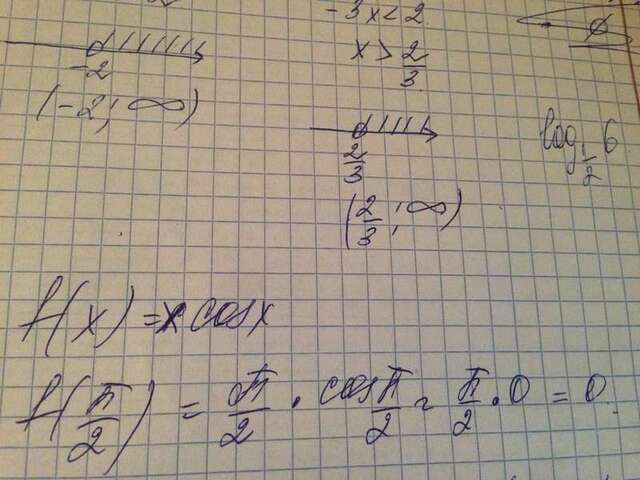 -3x < 2
x > 2/3
-2
(-2; ∞)
2/3
(2/3; ∞)
log_{1/2} 6
f(x) = x cosx
f(π/2) = π/2 · cos π/2 = π/2 · 0 = 0